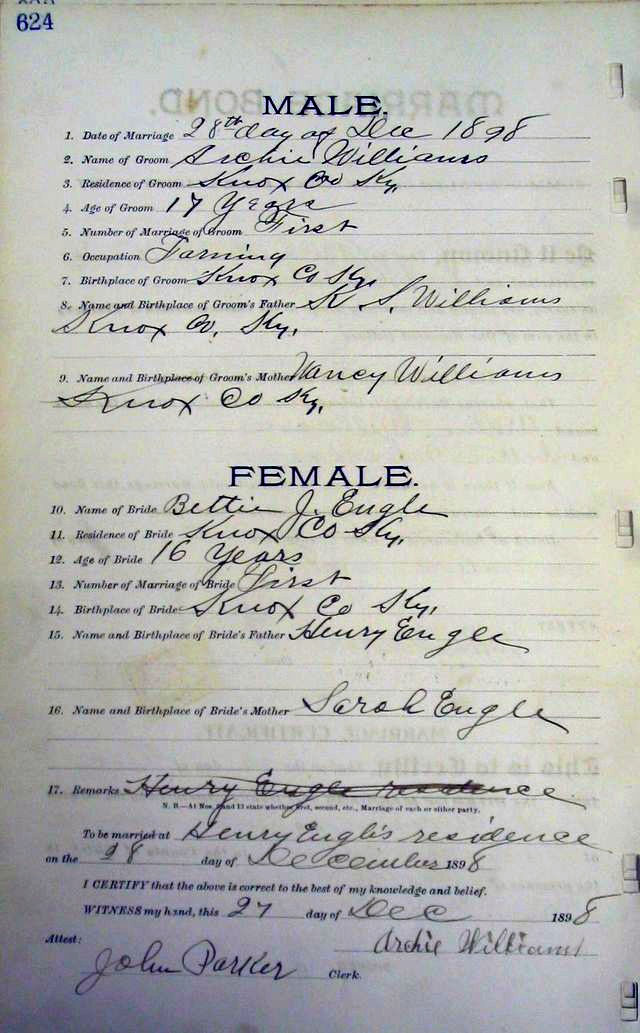 624
MALE.
1. Date of Marriage 28th day of Dec 1898
2. Name of Groom Archie Williams
3. Residence of Groom Knox Co Ky.
4. Age of Groom 17 Years
5. Number of Marriage of Groom First
6. Occupation Farming
7. Birthplace of Groom Knox Co Ky.
8. Name and Birthplace of Groom's Father K. S. Williams
Knox Co. Ky.
9. Name and Birthplace of Groom's Mother Nancy Williams
Knox Co Ky.
FEMALE.
10. Name of Bride Bettie J. Engle
11. Residence of Bride Knox Co Ky.
12. Age of Bride 16 Years
13. Number of Marriage of Bride First
14. Birthplace of Bride Knox Co Ky.
15. Name and Birthplace of Bride's Father Henry Engle
16. Name and Birthplace of Bride's Mother Sarah Engle
17. Remarks Henry Engle residence
N. B.—At Nos. 5 and 13 state whether first, second, etc., Marriage of each or either party.
To be married at Henry Engle's residence
on the 28 day of December 1898
I CERTIFY that the above is correct to the best of my knowledge and belief.
WITNESS my hand, this 27 day of Dec 1898
Attest: Archie Williams
John Parker Clerk.